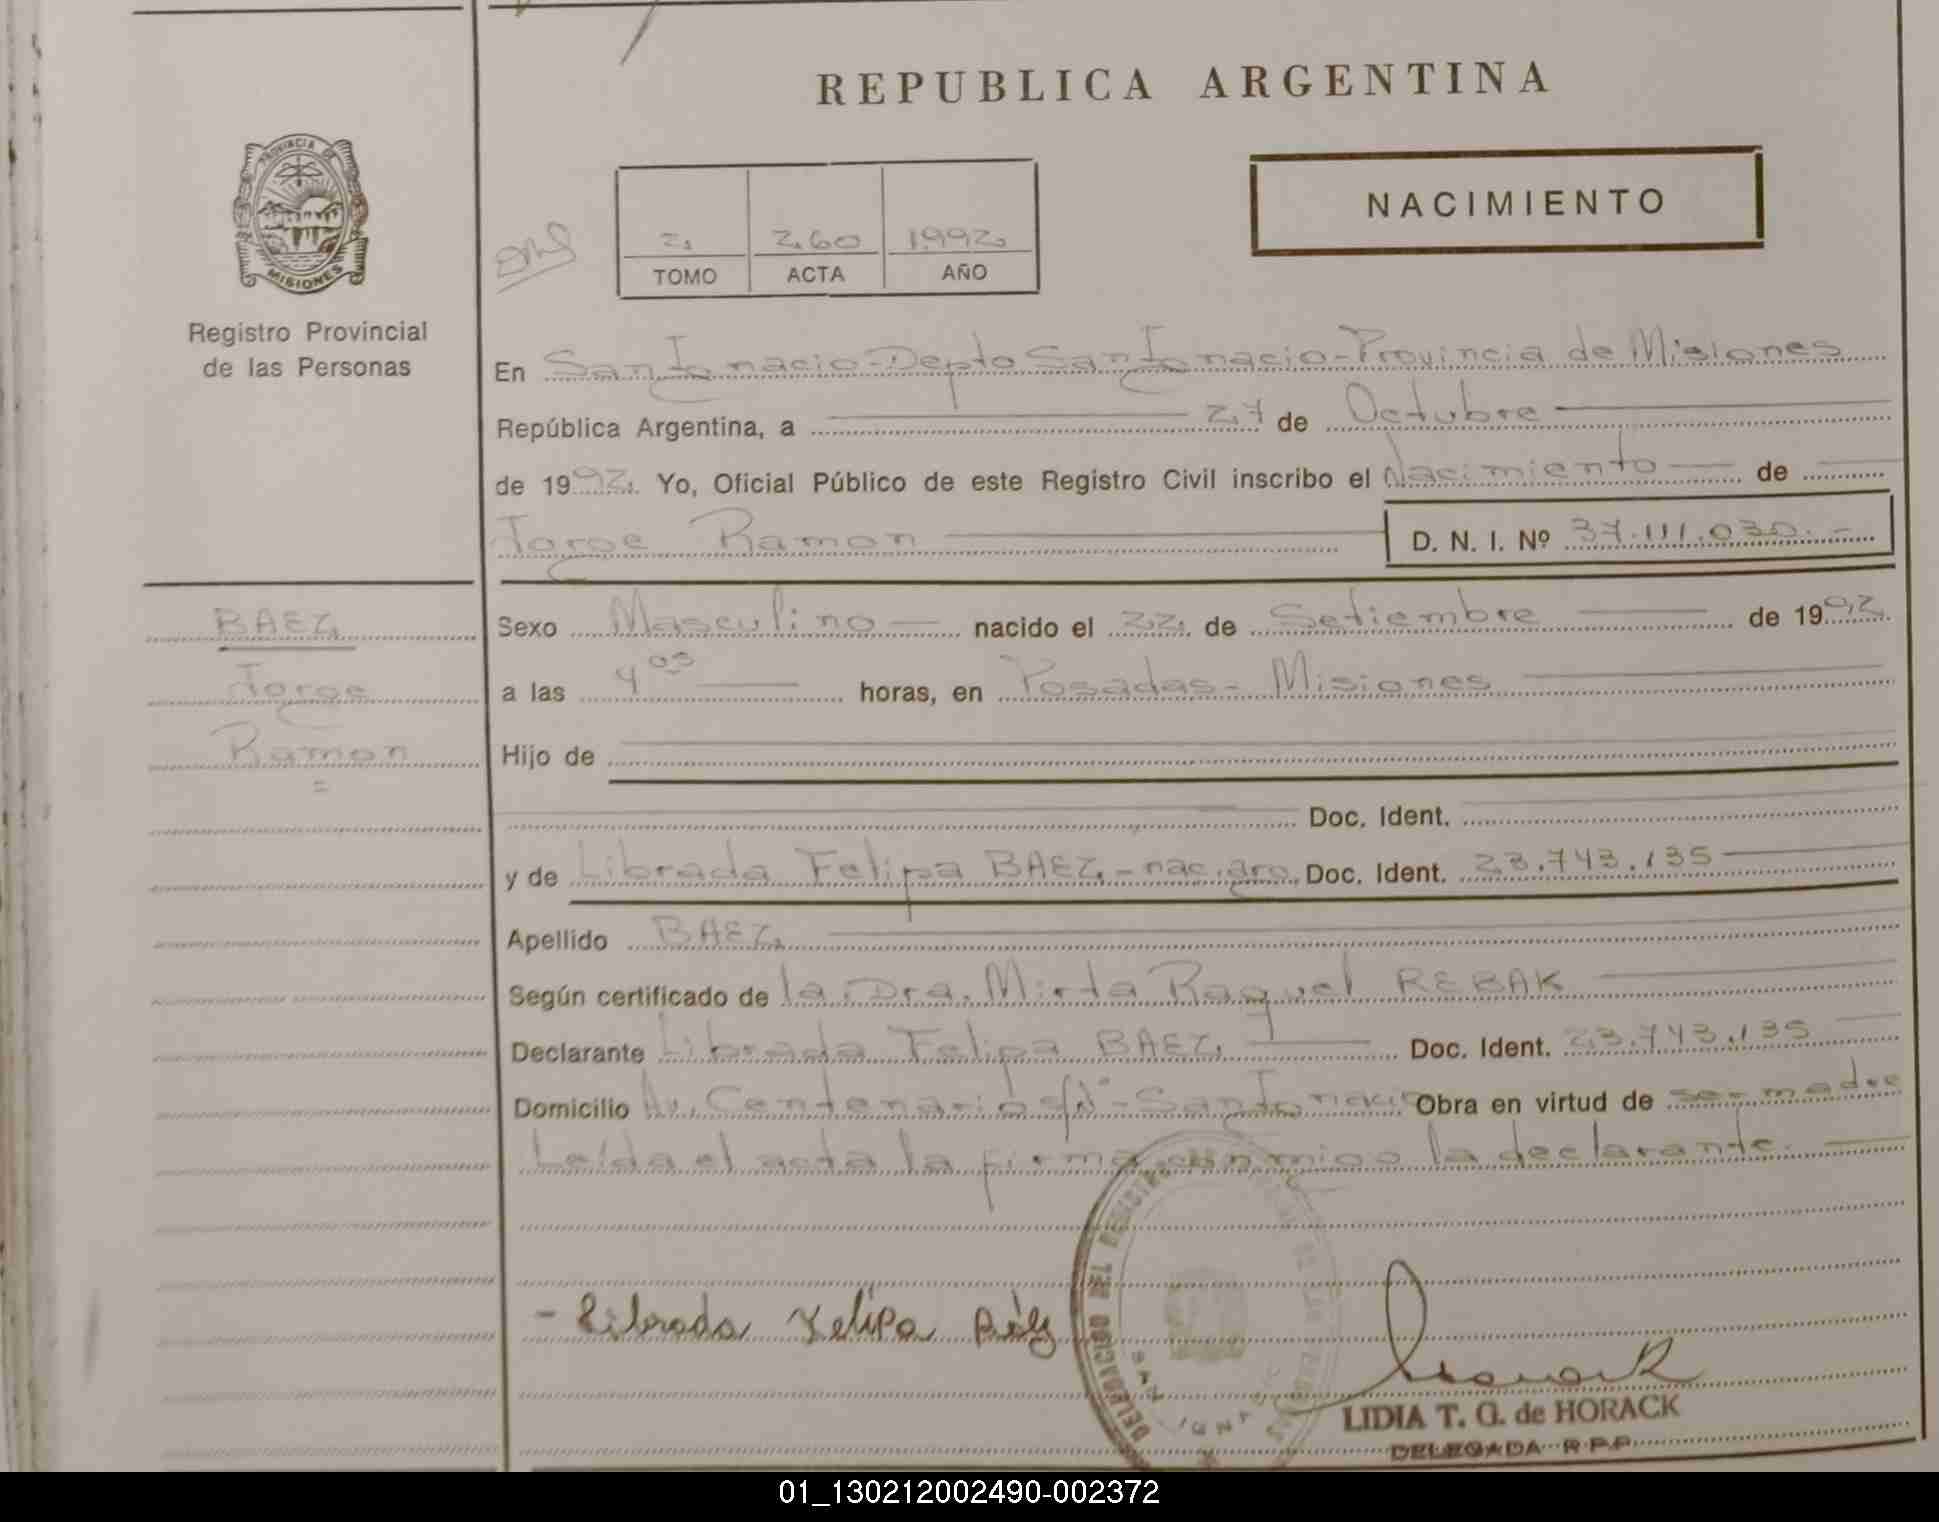 REPUBLICA ARGENTINA
PROVINCIA DE
MISIONES
Registro Provincial
de las Personas
NACIMIENTO
2. 260 1992.
TOMO ACTA AÑO
En San Ignacio-Depto San Ignacio-Provincia de Misiones
República Argentina, a 27 de Octubre
de 1992. Yo, Oficial Público de este Registro Civil inscribo el Nacimiento de
Jorge Ramon D. N. I. Nº 37.111.030.-
BAEZ
Jorge
Ramon
=
Sexo Masculino nacido el 22. de Setiembre de 1992.
a las 4 05 horas, en Posadas- Misiones
Hijo de
Doc. Ident.
y de Librada Felipa BAEZ.-nac.arg. Doc. Ident. 23.743.135
Apellido BAEZ.
Según certificado de la Dra. Mirta Raquel REBAK
Declarante Librada Felipa BAEZ. Doc. Ident. 23.743.135
Domicilio Av. Centenario s/Nº-San Ignacio Obra en virtud de ser madre
Leída el acta la firma conmigo la declarante.
- Librada Felipa Báez
LIDIA T. G. de HORACK
DELEGADA R.P.P.
01_130212002490-002372